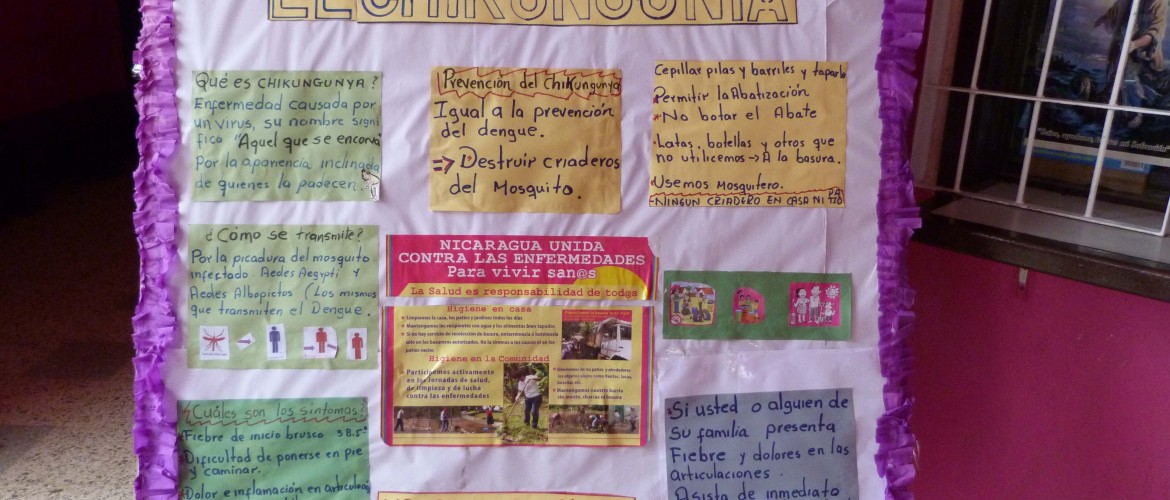 EL CHIKUNGUNIA
Qué es CHIKUNGUNYA?
Enfermedad causada por
un virus, su nombre signi
fica "Aquel que se encorva
Por la apariencia inclinada
de quienes la padecen.
Prevención del Chikungunya
Igual a la prevención
del dengue.
=> Destruir criaderos
del Mosquito.
Cepillar pilas y barriles y taparlo
Permitir la Abatización
No botar el Abate
Latas, botellas y otros que
no utilicemos → A la basura.
Usemos Mosquitero.
NINGUN CRIADERO EN CASA NI PATIO
¿Cómo se transmite?
Por la picadura del mosquito
infectado Aedes Aegypti y
Aedes Albopictos (Los mismos
que transmiten el Dengue.
NICARAGUA UNIDA
CONTRA LAS ENFERMEDADES
Para vivir san@s
La Salud es responsabilidad de tod@s
Higiene en casa
Limpiemos la casa, los patios y jardines todos los días
Mantengamos los recipientes con agua y los alimentos bien tapados.
Higiene en la Comunidad
Participemos activamente
en las Jornadas de salud,
de limpieza y de lucha
contra las enfermedades
¿Cuáles son los síntomas?
Fiebre de inicio brusco 38.5°
Dificultad de ponerse en pie
y caminar.
Dolor e inflamación en articulac
Si usted o alguien de
Su familia presenta
Fiebre y dolores en las
articulaciones.
Asista de inmediato